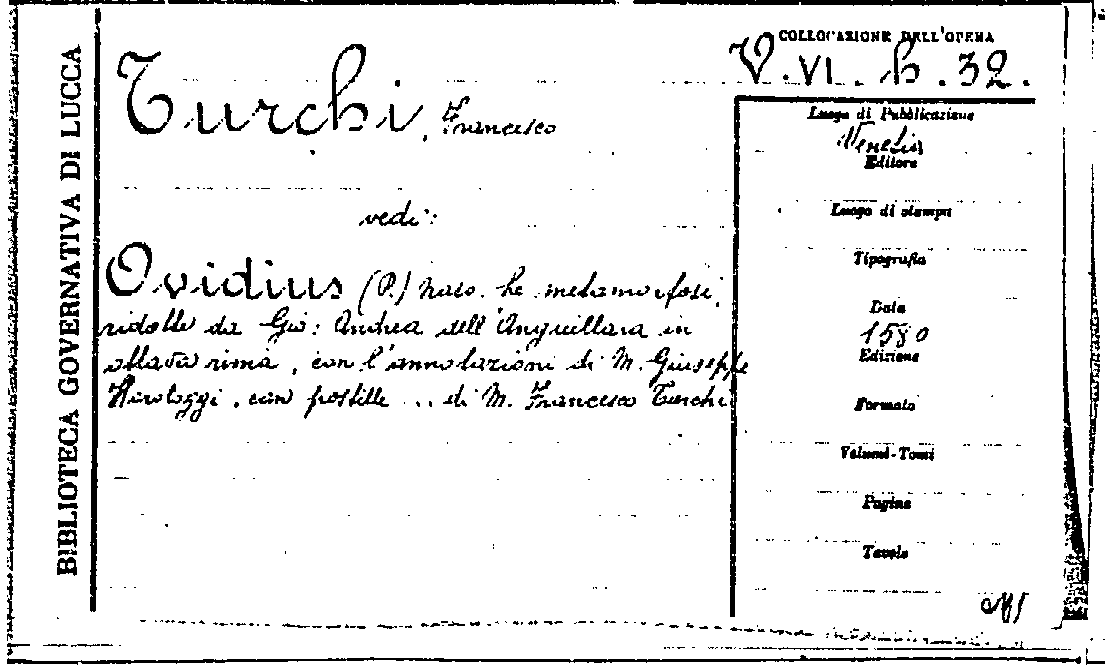 BIBLIOTECA GOVERNATIVA DI LUCCA
Turchi, Francesco
vedi:
Ovidius (P.) Naso. Le metamorfosi,
ridotte da Gio: Andrea dell'Anguillara in
ottava rima, con l'annotazioni di M. Giuseppe
Horologgi, con postille ... di M. Francesco Turchi
COLLOCAZIONE DELL'OPERA
V. VI. h. 32.
Luogo di Pubblicazione
Venezia
Editore
Luogo di stampa
Tipografia
Data
1580
Edizione
Formato
Volumi-Tomi
Pagine
Tavole